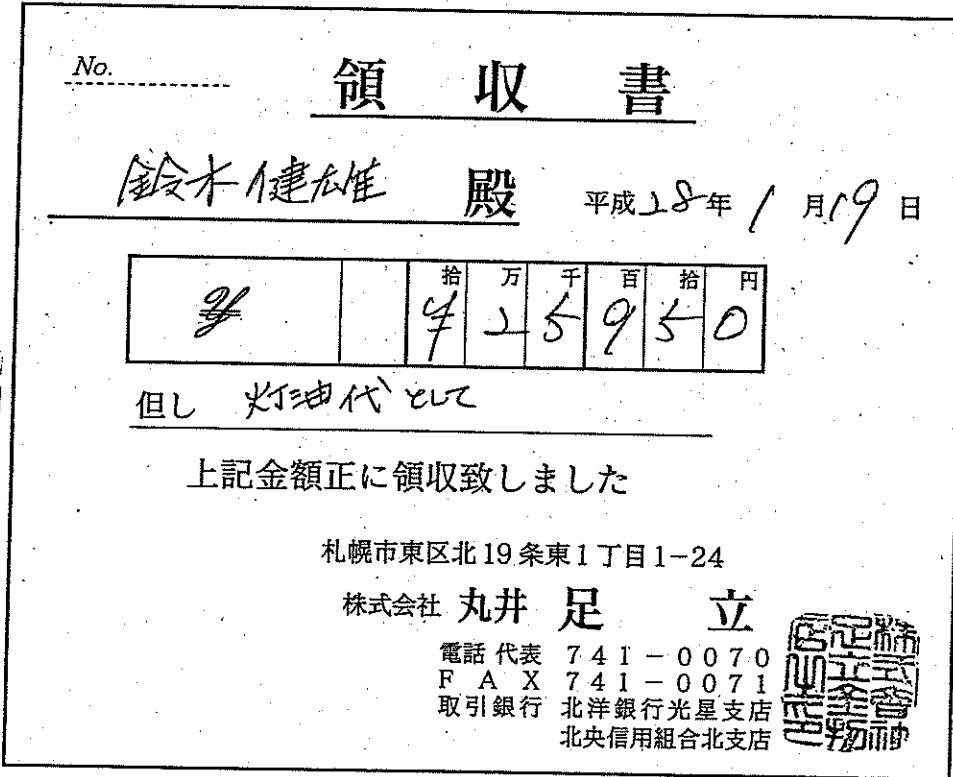 No.
領収書
鈴木健雄 殿 平成28年1月19日
拾 万 千 百 拾 円
¥ 2 5 9 5 0
但し 灯油代として
上記金額正に領収致しました
札幌市東区北19条東1丁目1-24
株式会社 丸井 足 立
電話 代表 741-0070
FAX 741-0071
取引銀行 北洋銀行光星支店
北央信用組合北支店